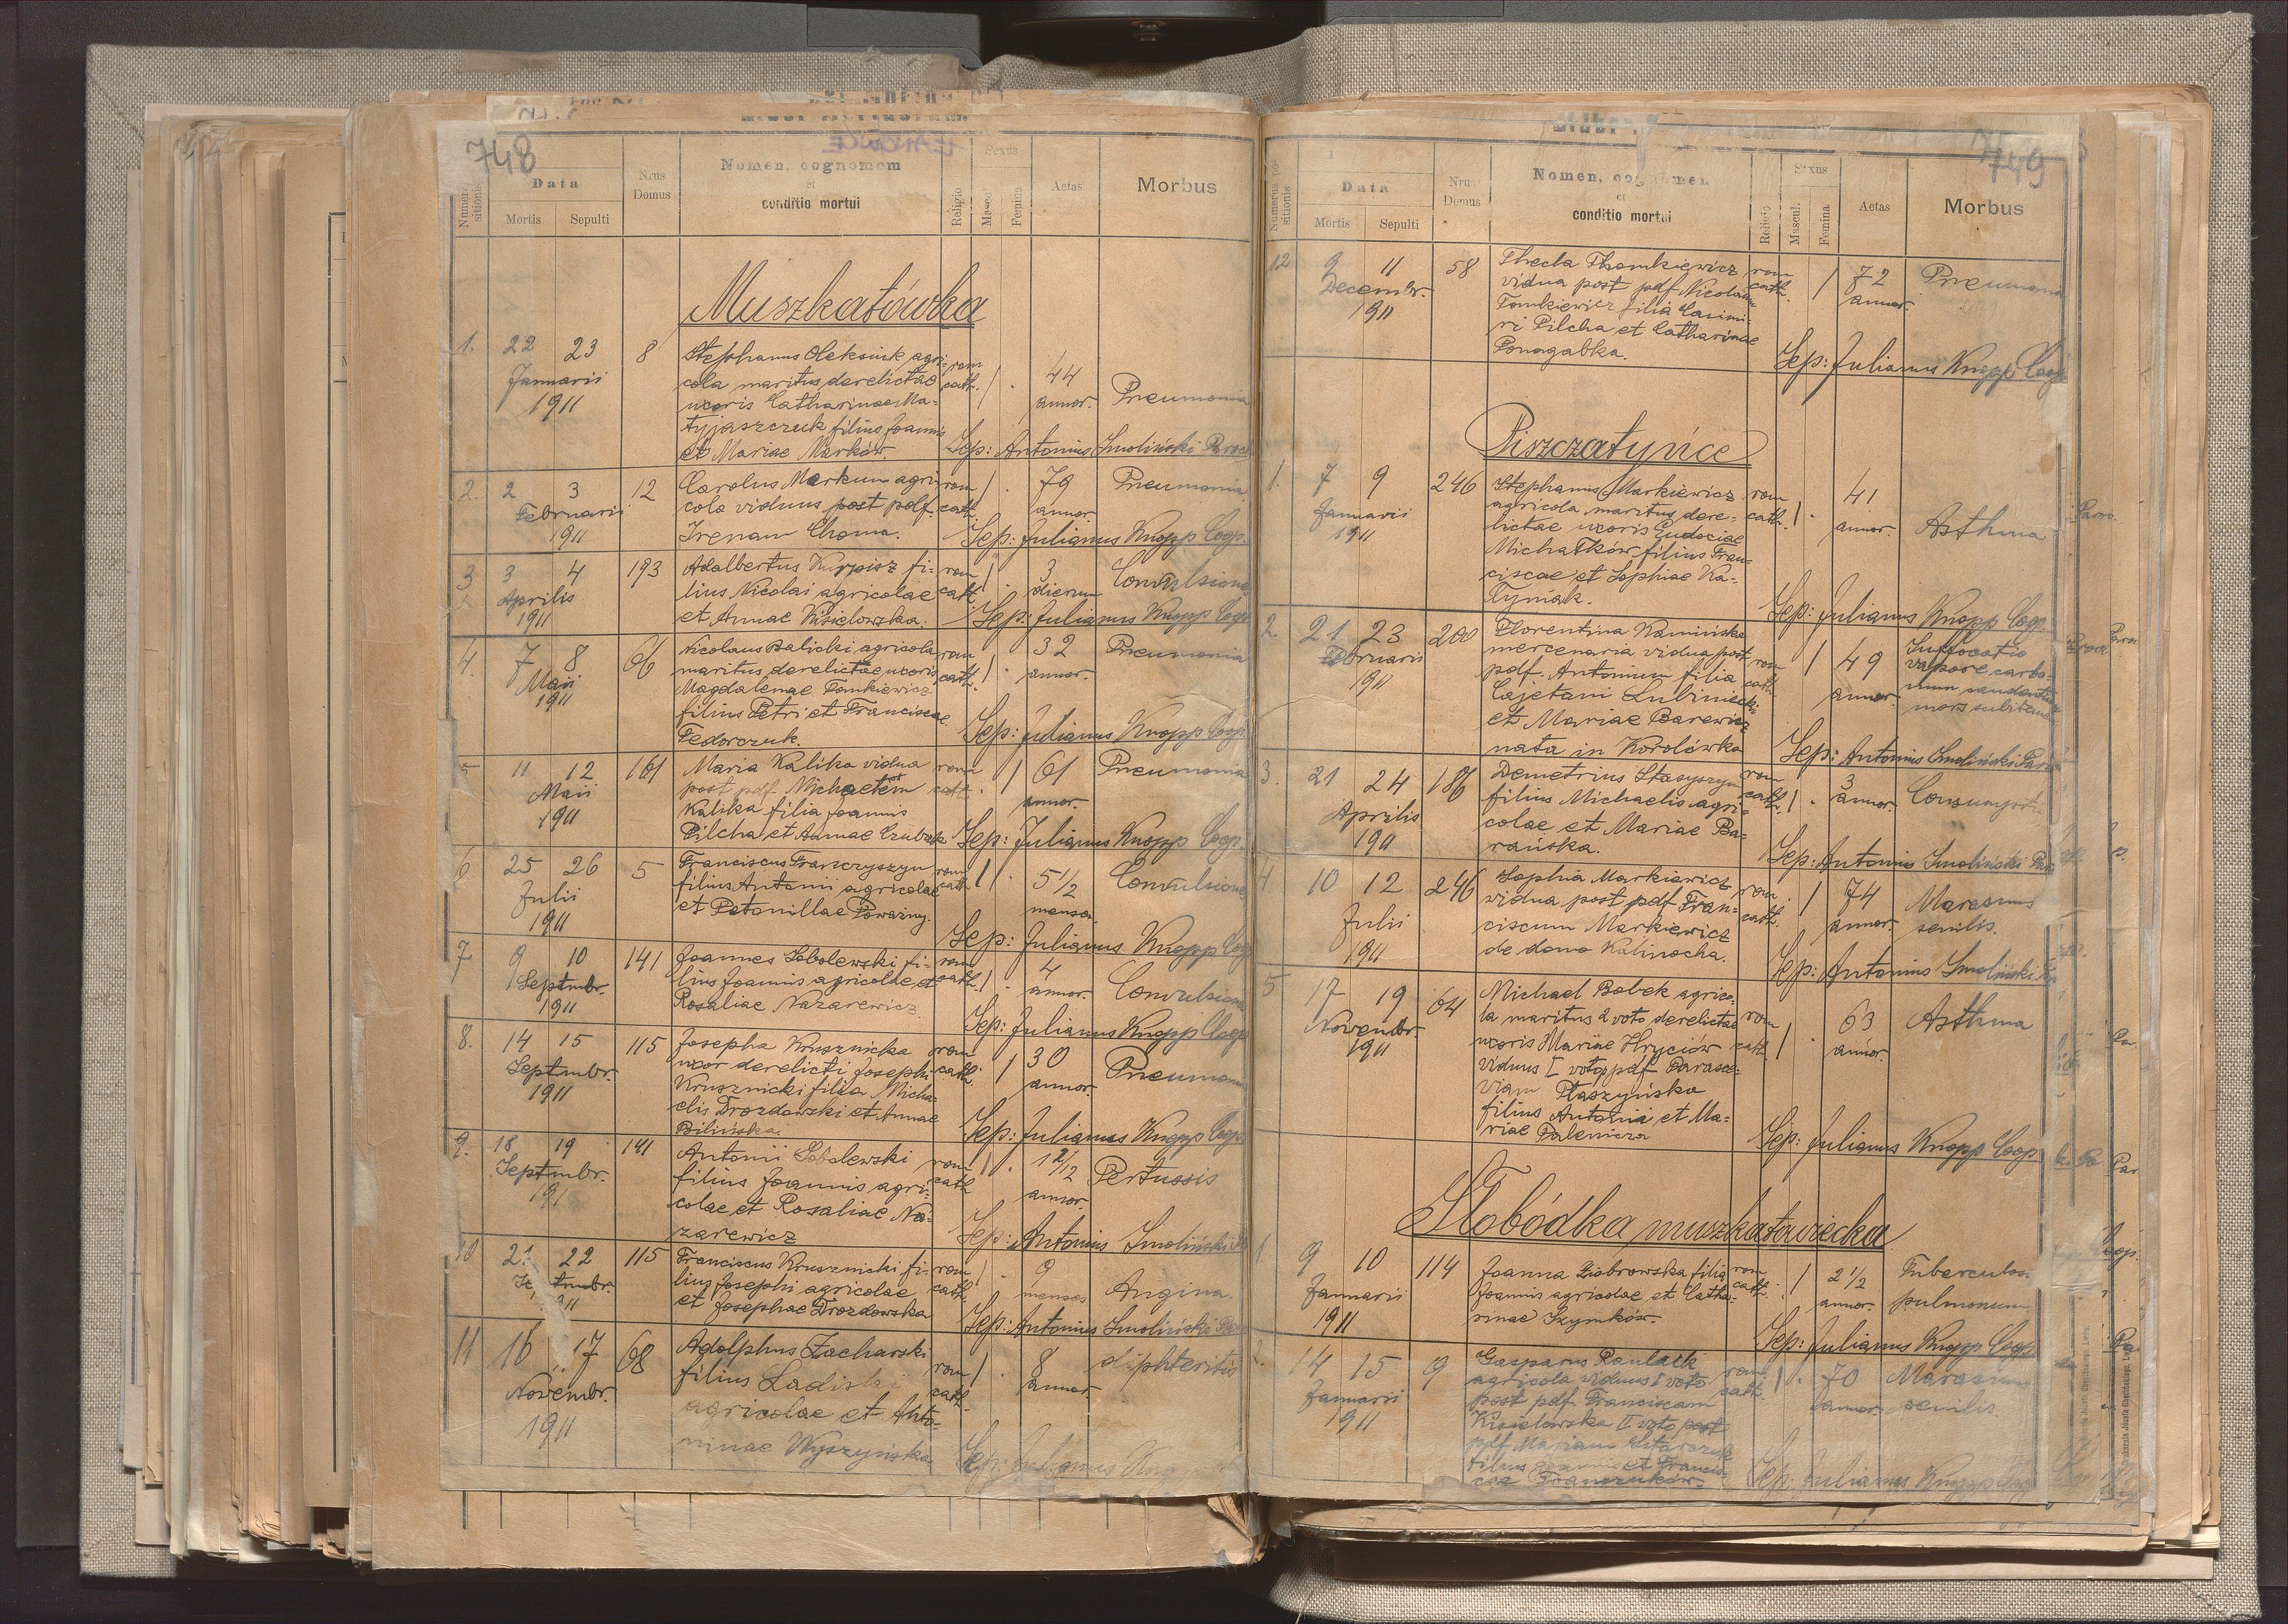 748
Numerus positionis
Data
Mortis
Sepulti
Nrus Domus
Nomen, cognomem
et
conditio mortui
Religio
Sexus
Mascul.
Femina
Aetas
Morbus
Muszkatówka
1. 22 23 8 Stephanus Oleksiuk agri- rom
Januarii cola maritus derelictae cath. 1 . 44
1911 uxoris Catharinae Ma- annor. Pneumonia
tyjaszczuk filius Joannis
et Mariae Marków. Sep: Antonius Smoliński Paroch
2. 2 3 12 Carolus Markum agri- rom 1 . 79 Pneumonia
Februarii cola viduus post pdf. cath. annor.
1911 Irenam Choma. Sep: Julianus Knopp Coop.
3 3 4 193 Adalbertus Kurpisz fi- rom 1 . 3 Convulsiones
Aprilis lius Nicolai agricolae cath. dierum
1911 et Annae Kisielowska. Sep: Julianus Knopp Coop
4. 7 8 66 Nicolaus Balicki agricola rom 1 . 32 Pneumonia
Maii maritus derelictae uxoris cath. annor.
1911 Magdalenae Tomkiewicz
filius Petri et Franciscae
Fedorczuk. Sep: Julianus Knopp Coop
5 11 12 161 Maria Kalika vidua rom . 1 61 Pneumonia
Maii post pdf Michaelem cath. annor.
1911 Kalika filia Joannis
Pilcha et Annae Czubak Sep: Julianus Knopp Coop.
6 25 26 5 Franciscus Franczyszyn rom 1 . 5 1/2 Convulsiones
Julii filius Antonii agricolae cath. menses.
1911 et Petonillae Poważny.
Sep: Julianus Knopp Coop
7 9 10 141 Joannes Sobolewski fi- rom 1 . 4
Septembr. lius Joannis agricolae et cath. annor. Convulsiones
1911 Rosaliae Nazarewicz.
Sep: Julianus Knopp Coop
8. 14 15 115 Josepha Krusznicka rom . 1 30
Septembr. uxor derelicti Josephi cath. annor. Pneumonia
1911 Krusznicki filia Micha-
elis Drozdowski et Annae
Bilińska. Sep: Julianus Knopp Coop
9. 18 19 141 Antonii Sobolewski rom 1 . 1 2/12
Septembr. filius Joannis agri- cath annor. Pertussis
191 colae et Rosaliae Na-
zarewicz Sep: Antonius Smoliński
10 21 22 115 Franciscus Krusznicki fi- rom 1 . 9
lius Josephi agricolae cath. menses Angina.
et Josephae Drozdowska Sep: Antonius Smoliński Par
11 16 17 68 Adolphus Zacharski
Novembr. filius Ladislai rom 1 . 8 diphteritis
1911 agricolae et Anto- cath. annor.
ninae Wyszyńska Sep: Julianus
749
Numerus positionis
Data
Mortis
Sepulti
Nrus Domus
Nomen, cognomen
et
conditio mortui
Religio
Sexus
Mascul.
Femina
Aetas
Morbus
12 9 11 58 Thecla Thomkiewicz rom . 1 72 Pneumonia
Decembr. vidua post pdf Nicolaum cath. annor.
1911 Tomkiewicz filia Casimi-
ri Pilcha et Catharinae
Ponagabka. Sep: Julianus Knopp Coop
Piszczatyńce
1. 7 9 246 Stephanus Markiewicz rom 1 . 41
Januarii agricola maritus dere- cath. annor. Asthma
1911 lictae uxoris Eudociae
Michałków filius Fran-
ciscae et Sophiae Ka-
tyniak. Sep: Julianus Knopp Coop.
2. 21 23 200 Florentina Kamińska
Februarii mercenaria vidua post rom . 1 49 Suffocatio
1911 pdf. Antonium filia cath annor. vapore carbo-
Cajetani Lubiniecki num
et Mariae Barewicz mors subitanea
nata in Korolówka Sep: Antonius Smoliński Par
3. 21 24 186 Demetrius Stasyszyn rom 1 . 3
Aprilis filius Michaelis agri- cath. annor. Consumptio
1911 colae et Mariae Ba-
rańska. Sep: Antonius Smoliński Par
4. 10 12 246 Sophia Markiewicz rom . 1 74 Marasmus
Julii vidua post pdf Fran- cath. annor. senilis.
1911 ciscum Markiewicz
de domo Kalinocha. Sep: Antonius Smoliński
5 17 19 64 Michael Bobek agrico-
Novembr. la maritus 2 voto derelictae rom 1 . 63 Asthma
1911 uxoris Mariae Hryciów cath annor.
viduus I voto pdf Parasce-
viam Płaszyńska
filius Antonii et Ma-
riae Palenicza Sep: Julianus Knopp Coop
Słobódka muszkatowiecka
1. 9 10 114 Joanna Ziobrowska filia rom . 1 2 1/2 Tuberculosis
Januarii Joannis agricolae et Catha- cath. annor. pulmonum
1911 rinae Szymków.
Sep: Julianus Knopp Coop
2. 14 15 9 Gasparus Raulack rom 1 . 70 Marasmus
Januarii agricola viduus I voto cath. annor. senilis.
1911 post pdf. Franciscam
Kisielówska II voto post
pdf Mariam
filius Joannis et Francis-
cae Franczuków. Sep: Julianus Knopp Coop